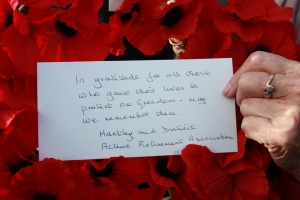 In gratitude for all those
who gave their lives to
protect our freedom - may
we remember them.
and District
Active Retirement Association